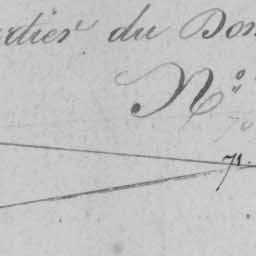 rtier du Don
N°.
70
71.